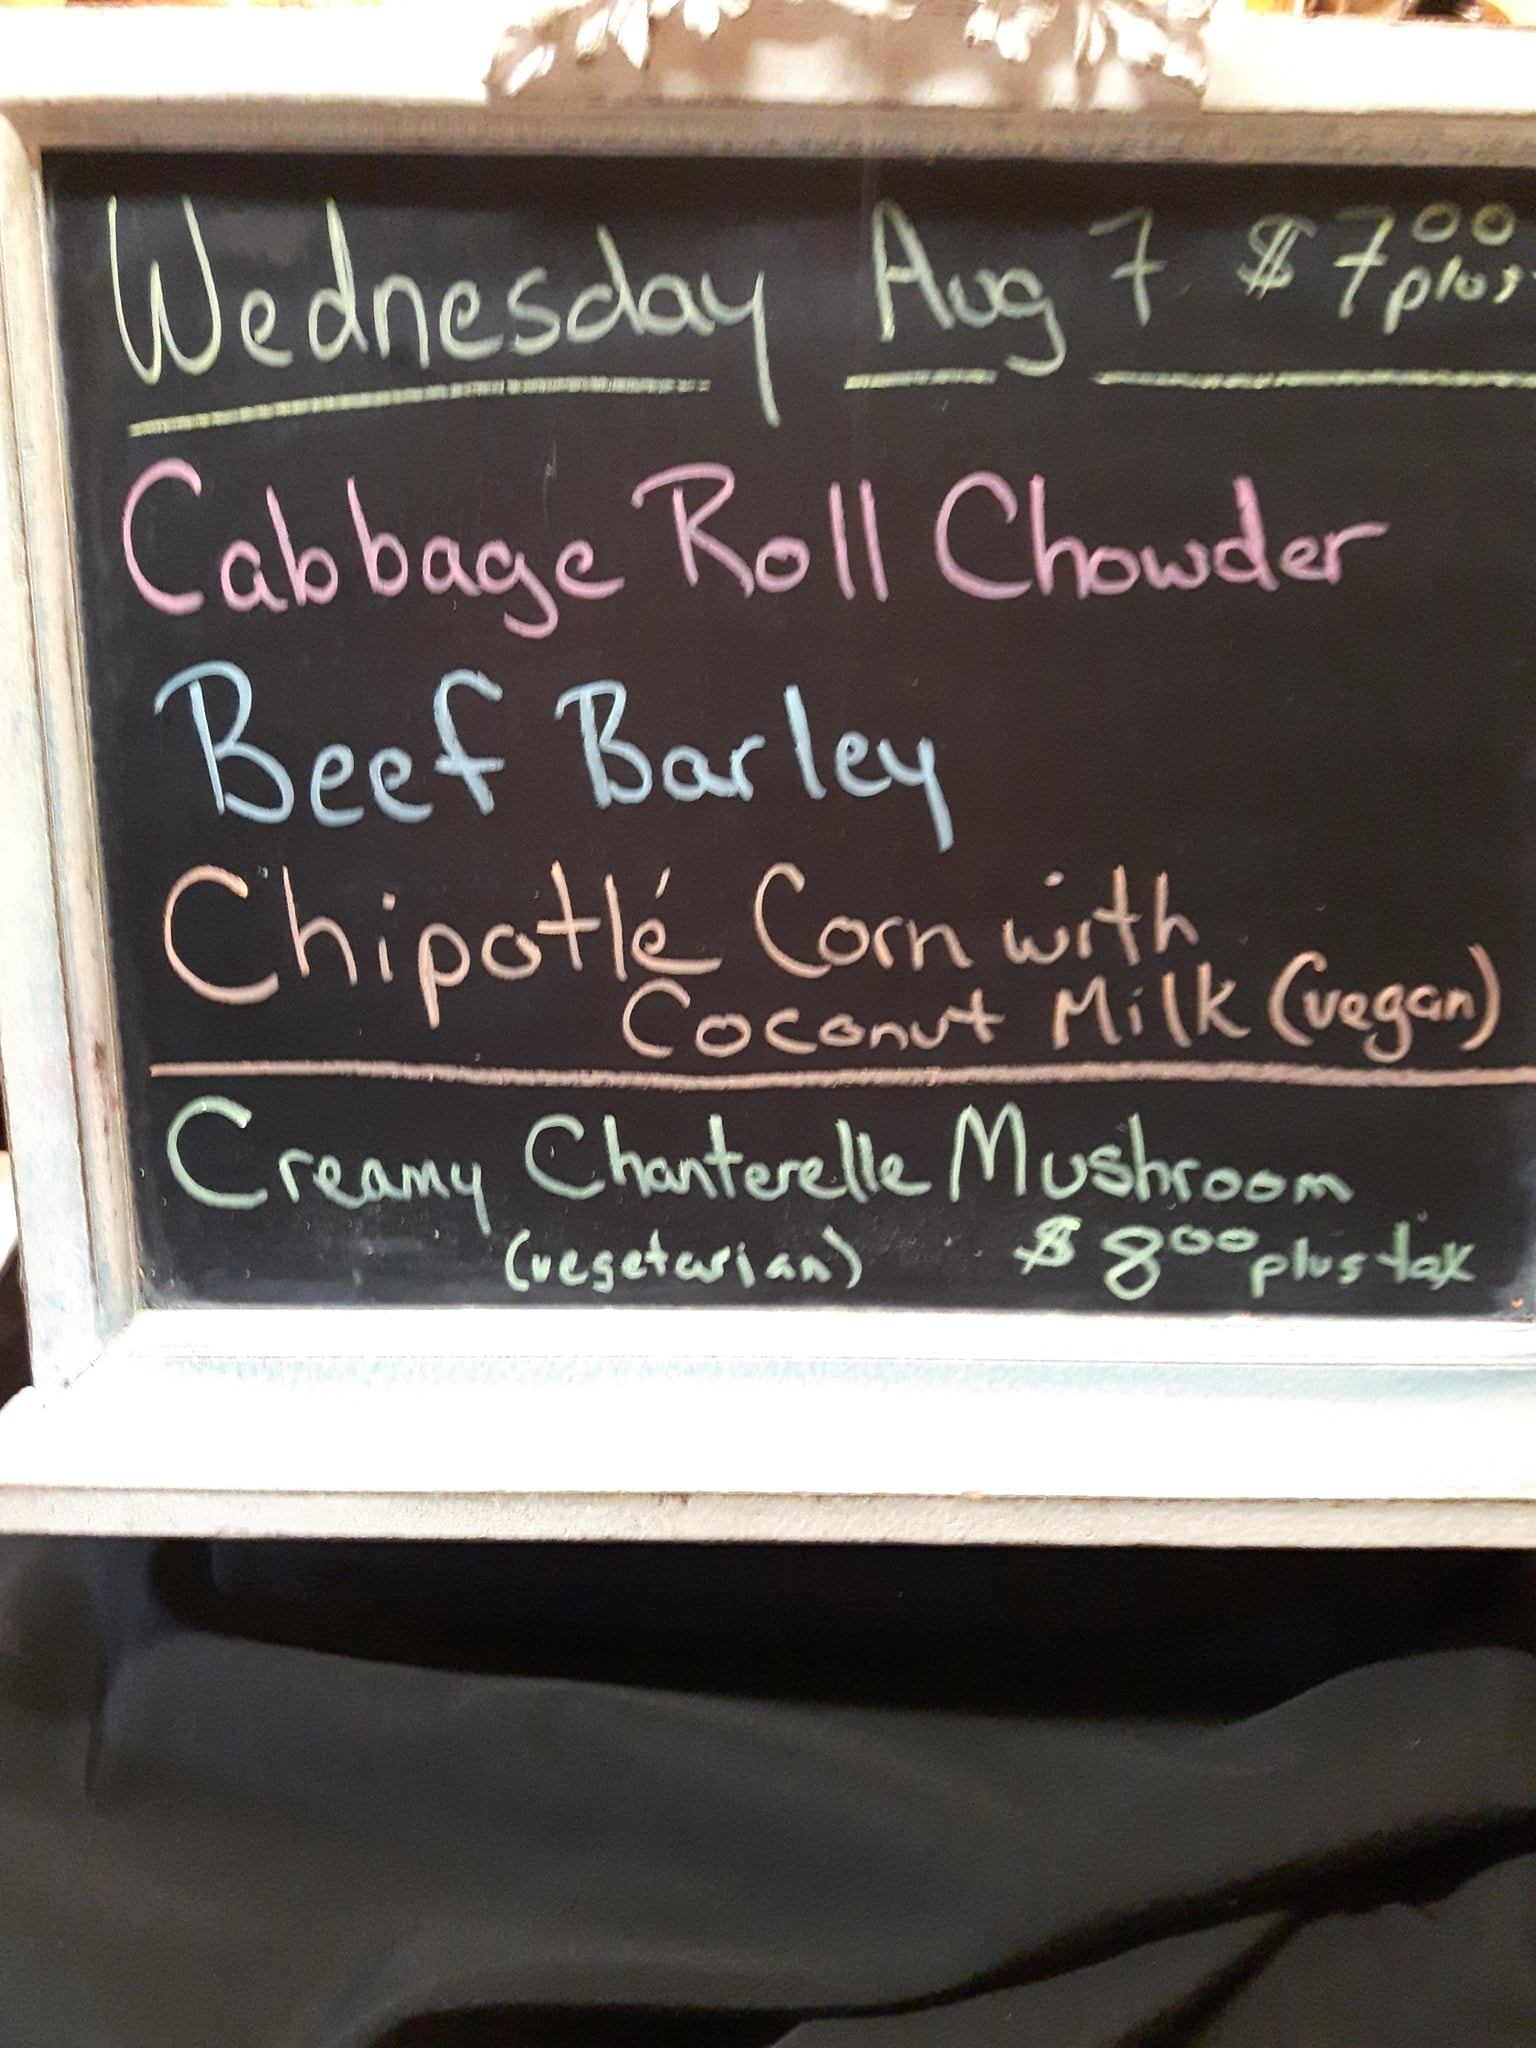 Wednesday Aug 7 $7.00 plus
Cabbage Roll Chowder
Beef Barley
Chipotlé Corn with
Coconut Milk (vegan)
Creamy Chanterelle Mushroom
(vegetarian) $8.00 plus tax